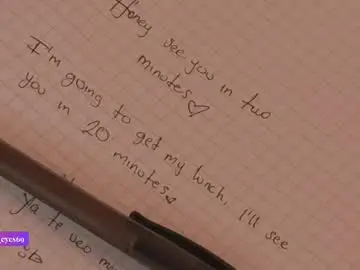 Honey see you in two
minutes♡
I'm going to get my lunch, I'll see
you in 20 minutes♡
Ya te veo
eyes69